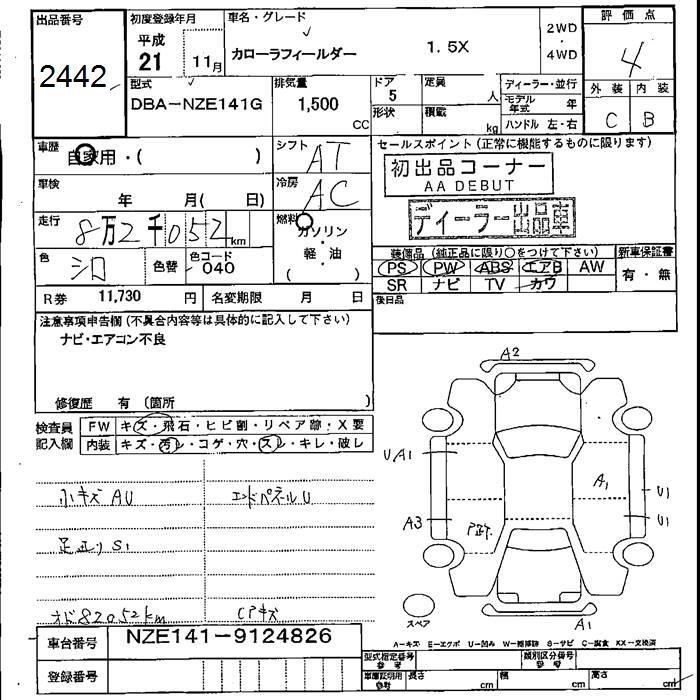 出品番号
2442
初度登録年月
平成
21 11月
車名・グレード
カローラフィールダー 1.5X
2WD
・
4WD
評価点
4
外装 内装
C B
型式
DBA-NZE141G
排気量
1,500
CC
ドア
5
形状
定員
人
積載
kg
ディーラー・並行
モデル年式 年
ハンドル 左・右
車歴
自家用・( )
車検
年 月( 日)
走行
8万2千052km
色
シロ
色替
色コード
040
シフト
AT
冷房
AC
燃料
ガソリン
・
軽・油
( )
セールスポイント (正常に機能するものに限ります)
初出品コーナー
AA DEBUT
ディーラー出品車
装備品 (純正品に限り○をつけて下さい)
PS PW ABS エアB AW
SR ナビ TV カワ
新車保証書
有・無
後日品
R券 11,730 円
名変期限 月 日
注意事項申告欄 (不具合内容等は具体的に記入して下さい)
ナビ・エアコン不良
修復歴 有 (箇所 )
検査員
記入欄
FW キズ・飛石・ヒビ割・リペア跡・X要
内装 キズ・汚レ・コゲ・穴・スレ・キレ・破レ
小キズ AU
エンドパネルU
足廻り S1
オド82052km
CPキズ
A2
UA1
A3
A1
U1
U1
A1
スペア
A-キズ E-エクボ U-凹み W-補修跡 S-サビ C-腐食 XX-交換済
車台番号
NZE141-9124826
登録番号
型式指定番号
参考
類別区分番号
参考
車庫証明用
参考
長さ cm
幅 cm
高さ cm